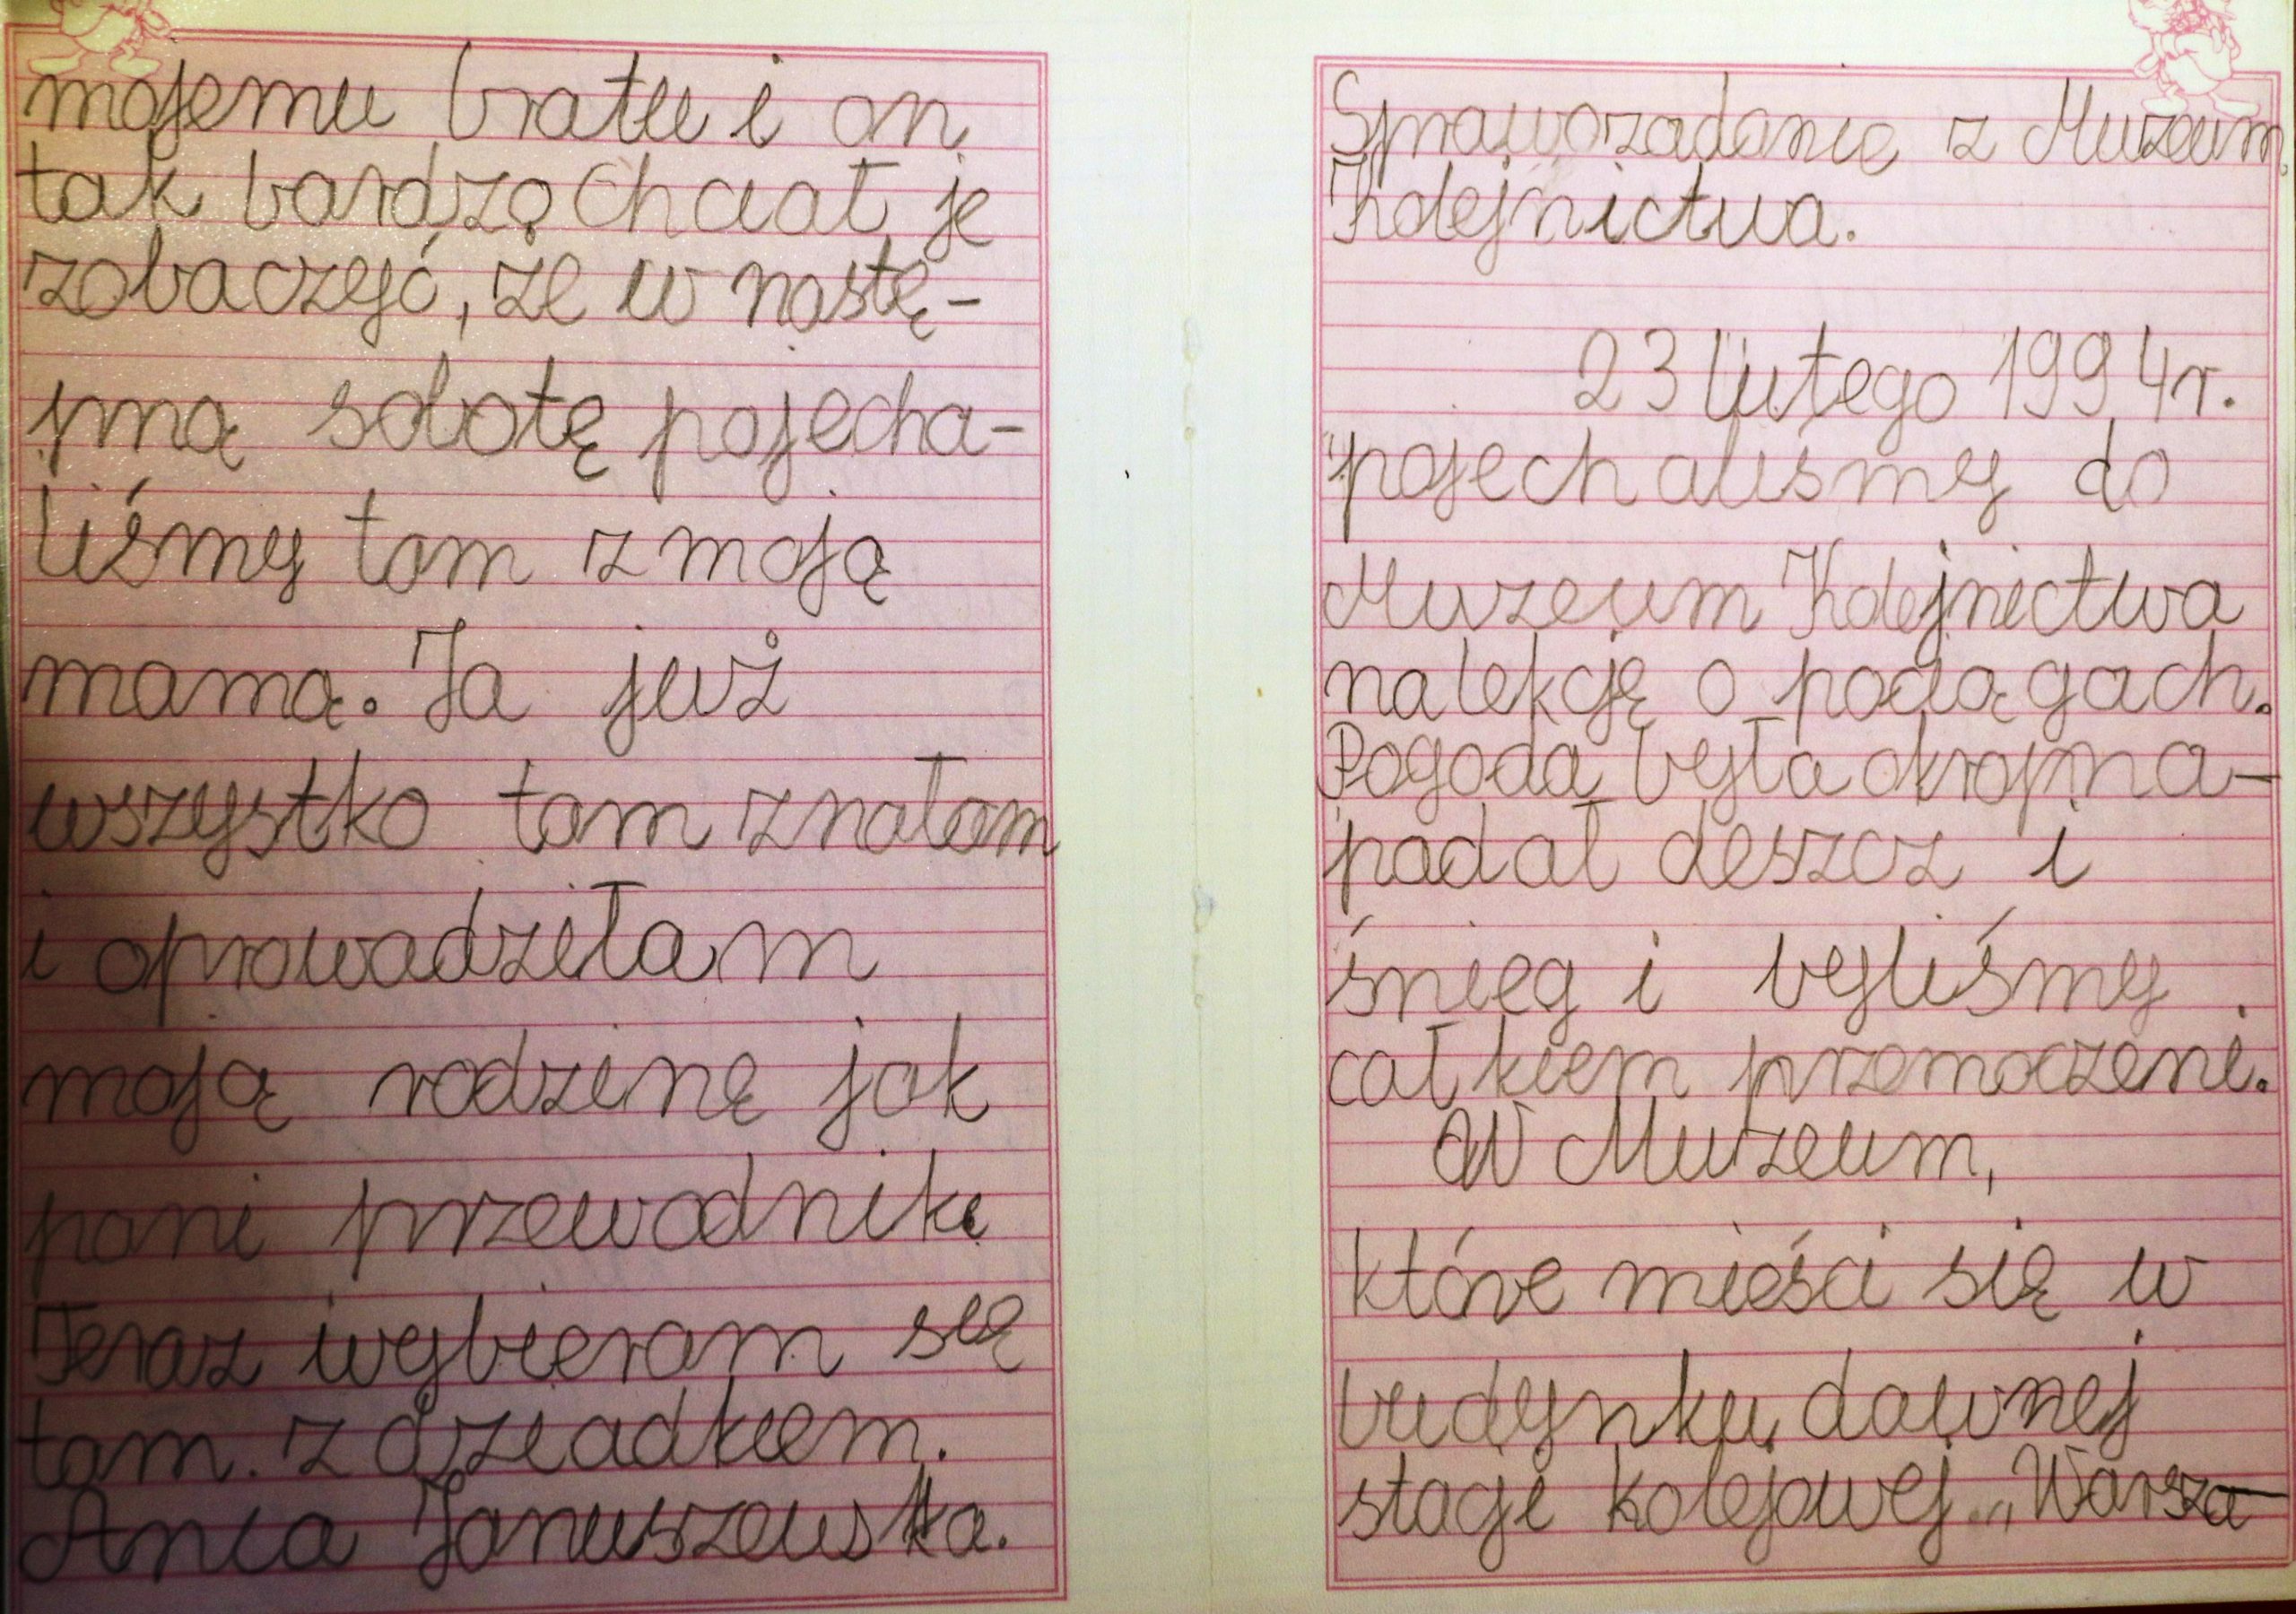 mojemu bratu i on
tak bardzo chciał je
zobaczyć, że w nastę-
pną sobotę pojecha-
liśmy tam z moją
mamą. Ja już
wszystko tam znałam
i oprowadziłam
moją rodzinę jak
pani przewodnik
Teraz wybieram się
tam z dziadkiem.
Ania Januszewska.
Sprawozadanie z Muzeum
Kolejnictwa.
23 lutego 1994r.
pojechaliśmy do
Muzeum Kolejnictwa
na lekcję o pociągach.
Pogoda była okropna-
padał deszcz i
śnieg i byliśmy
całkiem przemoczeni.
W Muzeum,
które mieści się w
budynku dawnej
stacji kolejowej „Warsza-